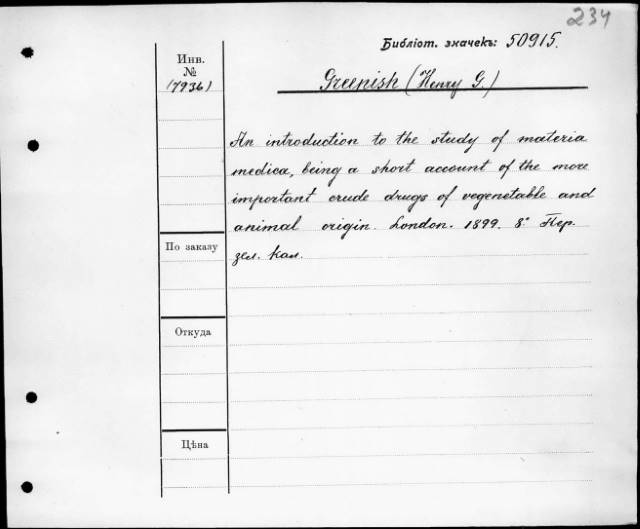 234
Библіот. значекъ: 50915.
Инв.
№
17936)
Greenish (Henry G.)
An introduction to the study of materia
medica, being a short account of the more
important crude drugs of vegenetable and
animal origin. London. 1899. 8° Пер.
зел. кал.
По заказу
Откуда
Цѣна